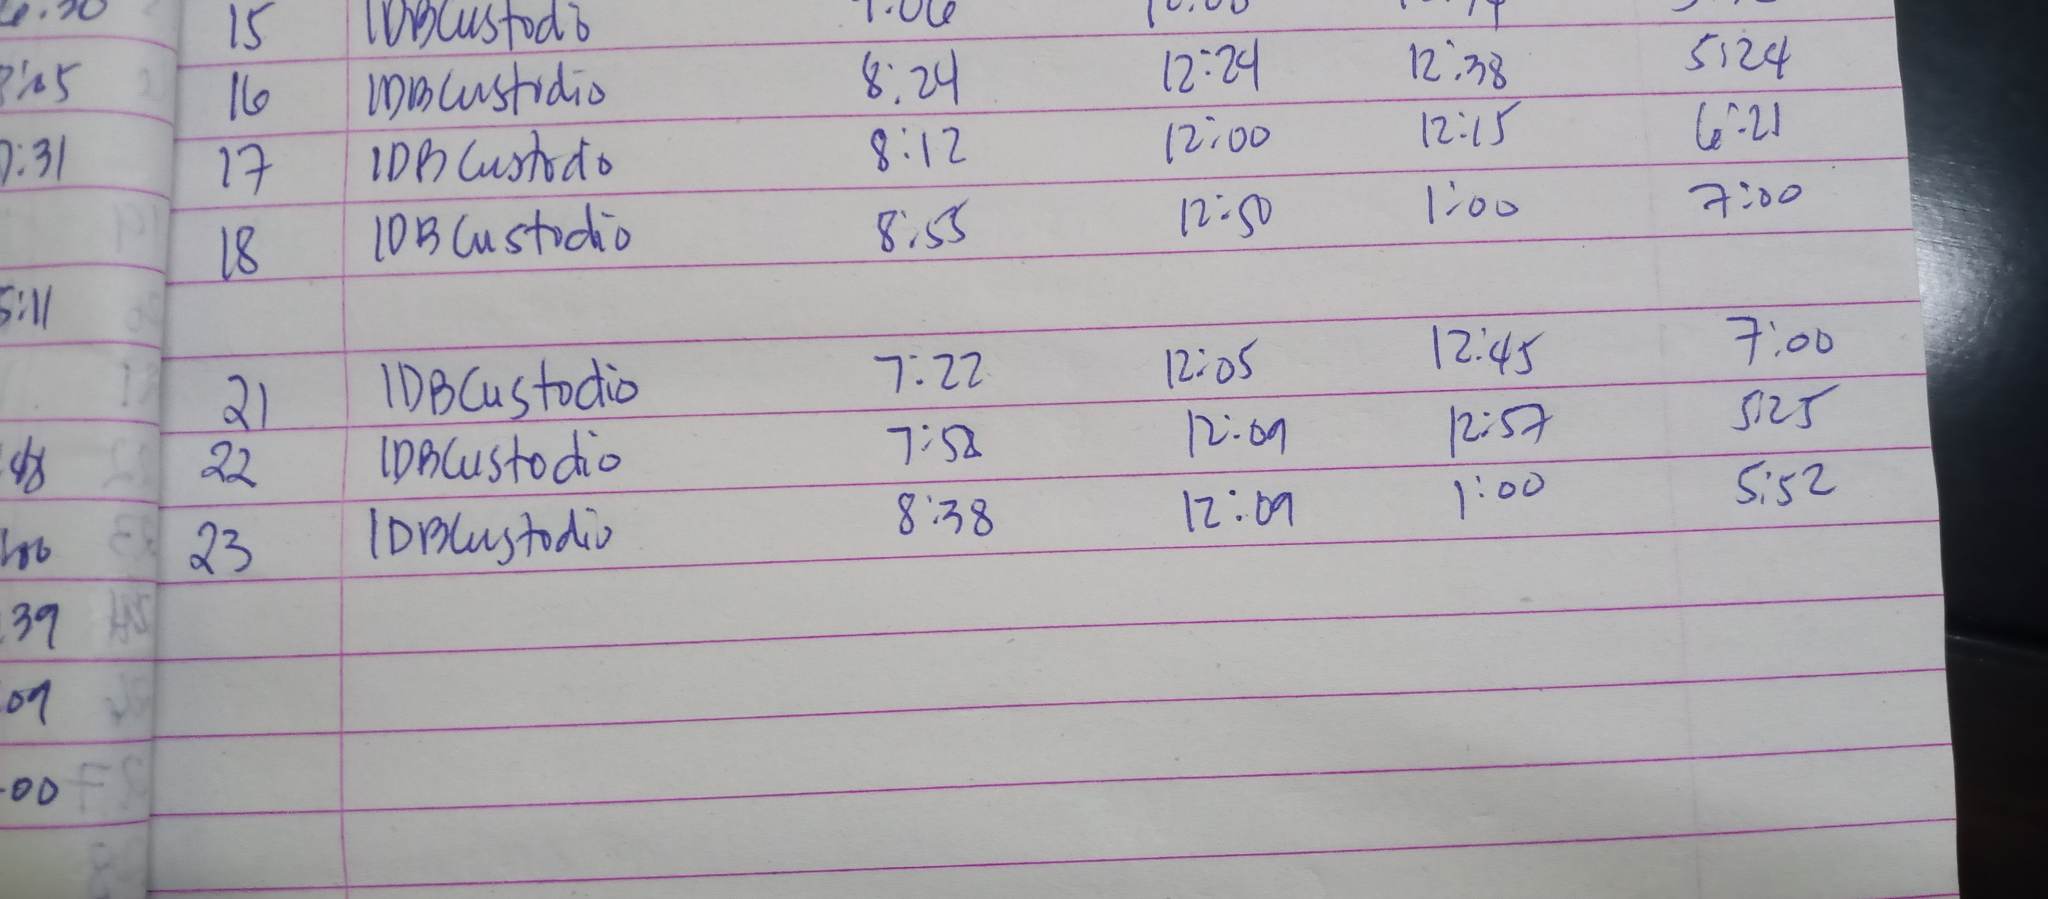 15 IDBCustodio
16 IDBCustodio 8:24 12:24 12:38 5:24
17 IDBCustodio 8:12 12:00 12:15 6:21
18 IDBCustodio 8:55 12:50 1:00 7:00
21 IDBCustodio 7:22 12:05 12:45 7:00
22 IDBCustodio 7:58 12:09 12:57 5:25
23 IDBCustodio 8:38 12:09 1:00 5:52
:31
5:11
39
09
00